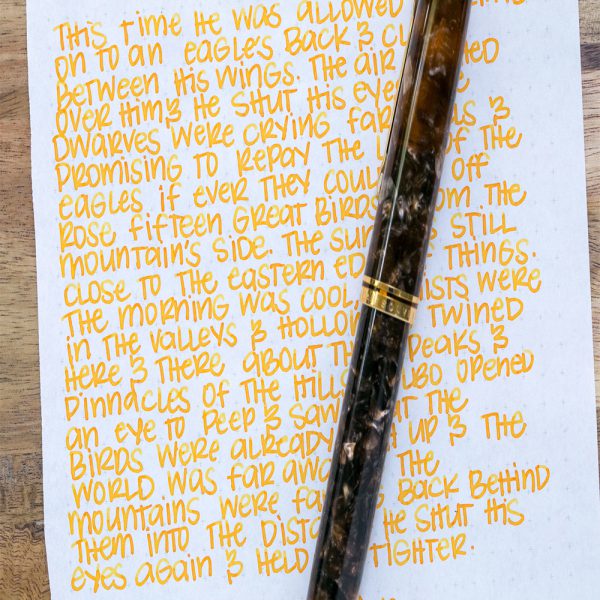 This time he was allowed
on to an eagle's back &
between his wings. The air
over him & he shut his eyes
Dwarves were crying &
promising to repay the of the
eagles if ever they off
rose fifteen great birds the
mountain's side. The still
close to the eastern of things.
The morning was cool were
in the valleys & twined
here & there about peaks &
pinnacles of the hills opened
an eye to peep & saw the
birds were already up & the
world was far the
mountains were back behind
them into the he shut his
eyes again & held tighter.